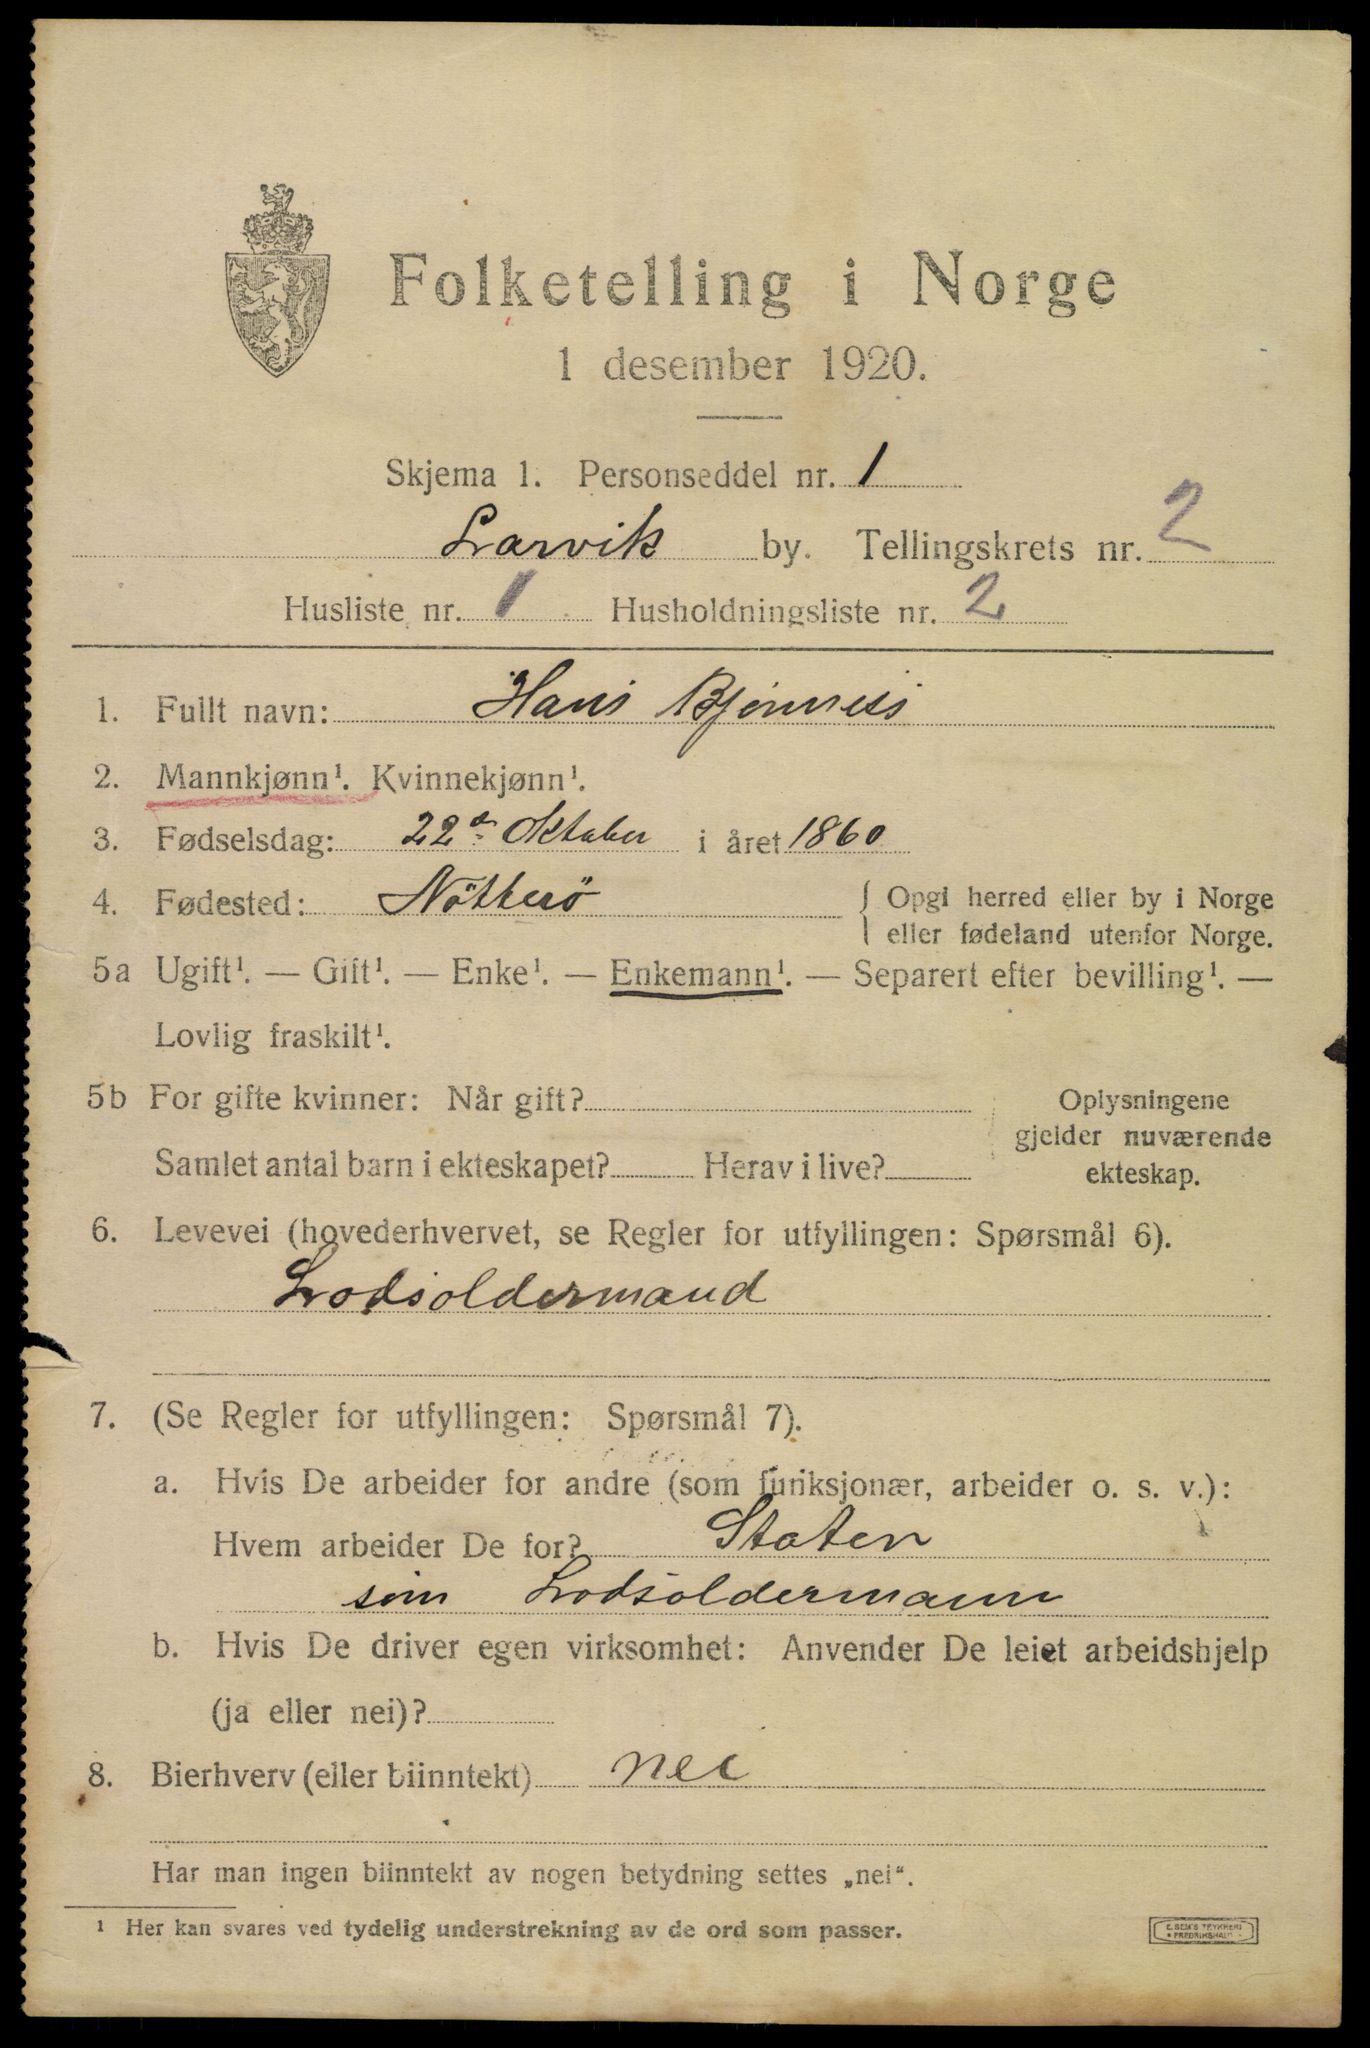 Folketelling i Norge
1 desember 1920.
Skjema 1. Personseddel nr. 1
Larvik by. Tellingskrets nr. 2
Husliste nr. 1 Husholdningsliste nr. 2
1. Fullt navn: Hans Bjönness
2. Mannkjønn¹. Kvinnekjønn¹.
3. Fødselsdag: 22de Oktober i året 1860
4. Fødested: Nötterö { Opgi herred eller by i Norge
eller fødeland utenfor Norge.
5a Ugift¹. — Gift¹. — Enke¹. — Enkemann¹. — Separert efter bevilling¹. —
Lovlig fraskilt¹.
5b For gifte kvinner: Når gift? Oplysningene
gjelder nuværende
Samlet antal barn i ekteskapet? Herav i live? ekteskap.
6. Levevei (hovederhvervet, se Regler for utfyllingen: Spørsmål 6).
Lodsoldermand
7. (Se Regler for utfyllingen: Spørsmål 7).
a. Hvis De arbeider for andre (som funksjonær, arbeider o. s. v.):
Hvem arbeider De for? Staten
som Lodsoldermann
b. Hvis De driver egen virksomhet: Anvender De leiet arbeidshjelp
(ja eller nei)?
8. Bierhverv (eller biinntekt) nei
Har man ingen biinntekt av nogen betydning settes „nei“.
¹ Her kan svares ved tydelig understrekning av de ord som passer.
E. SEM'S TRYKKERI
FREDRIKSHALD